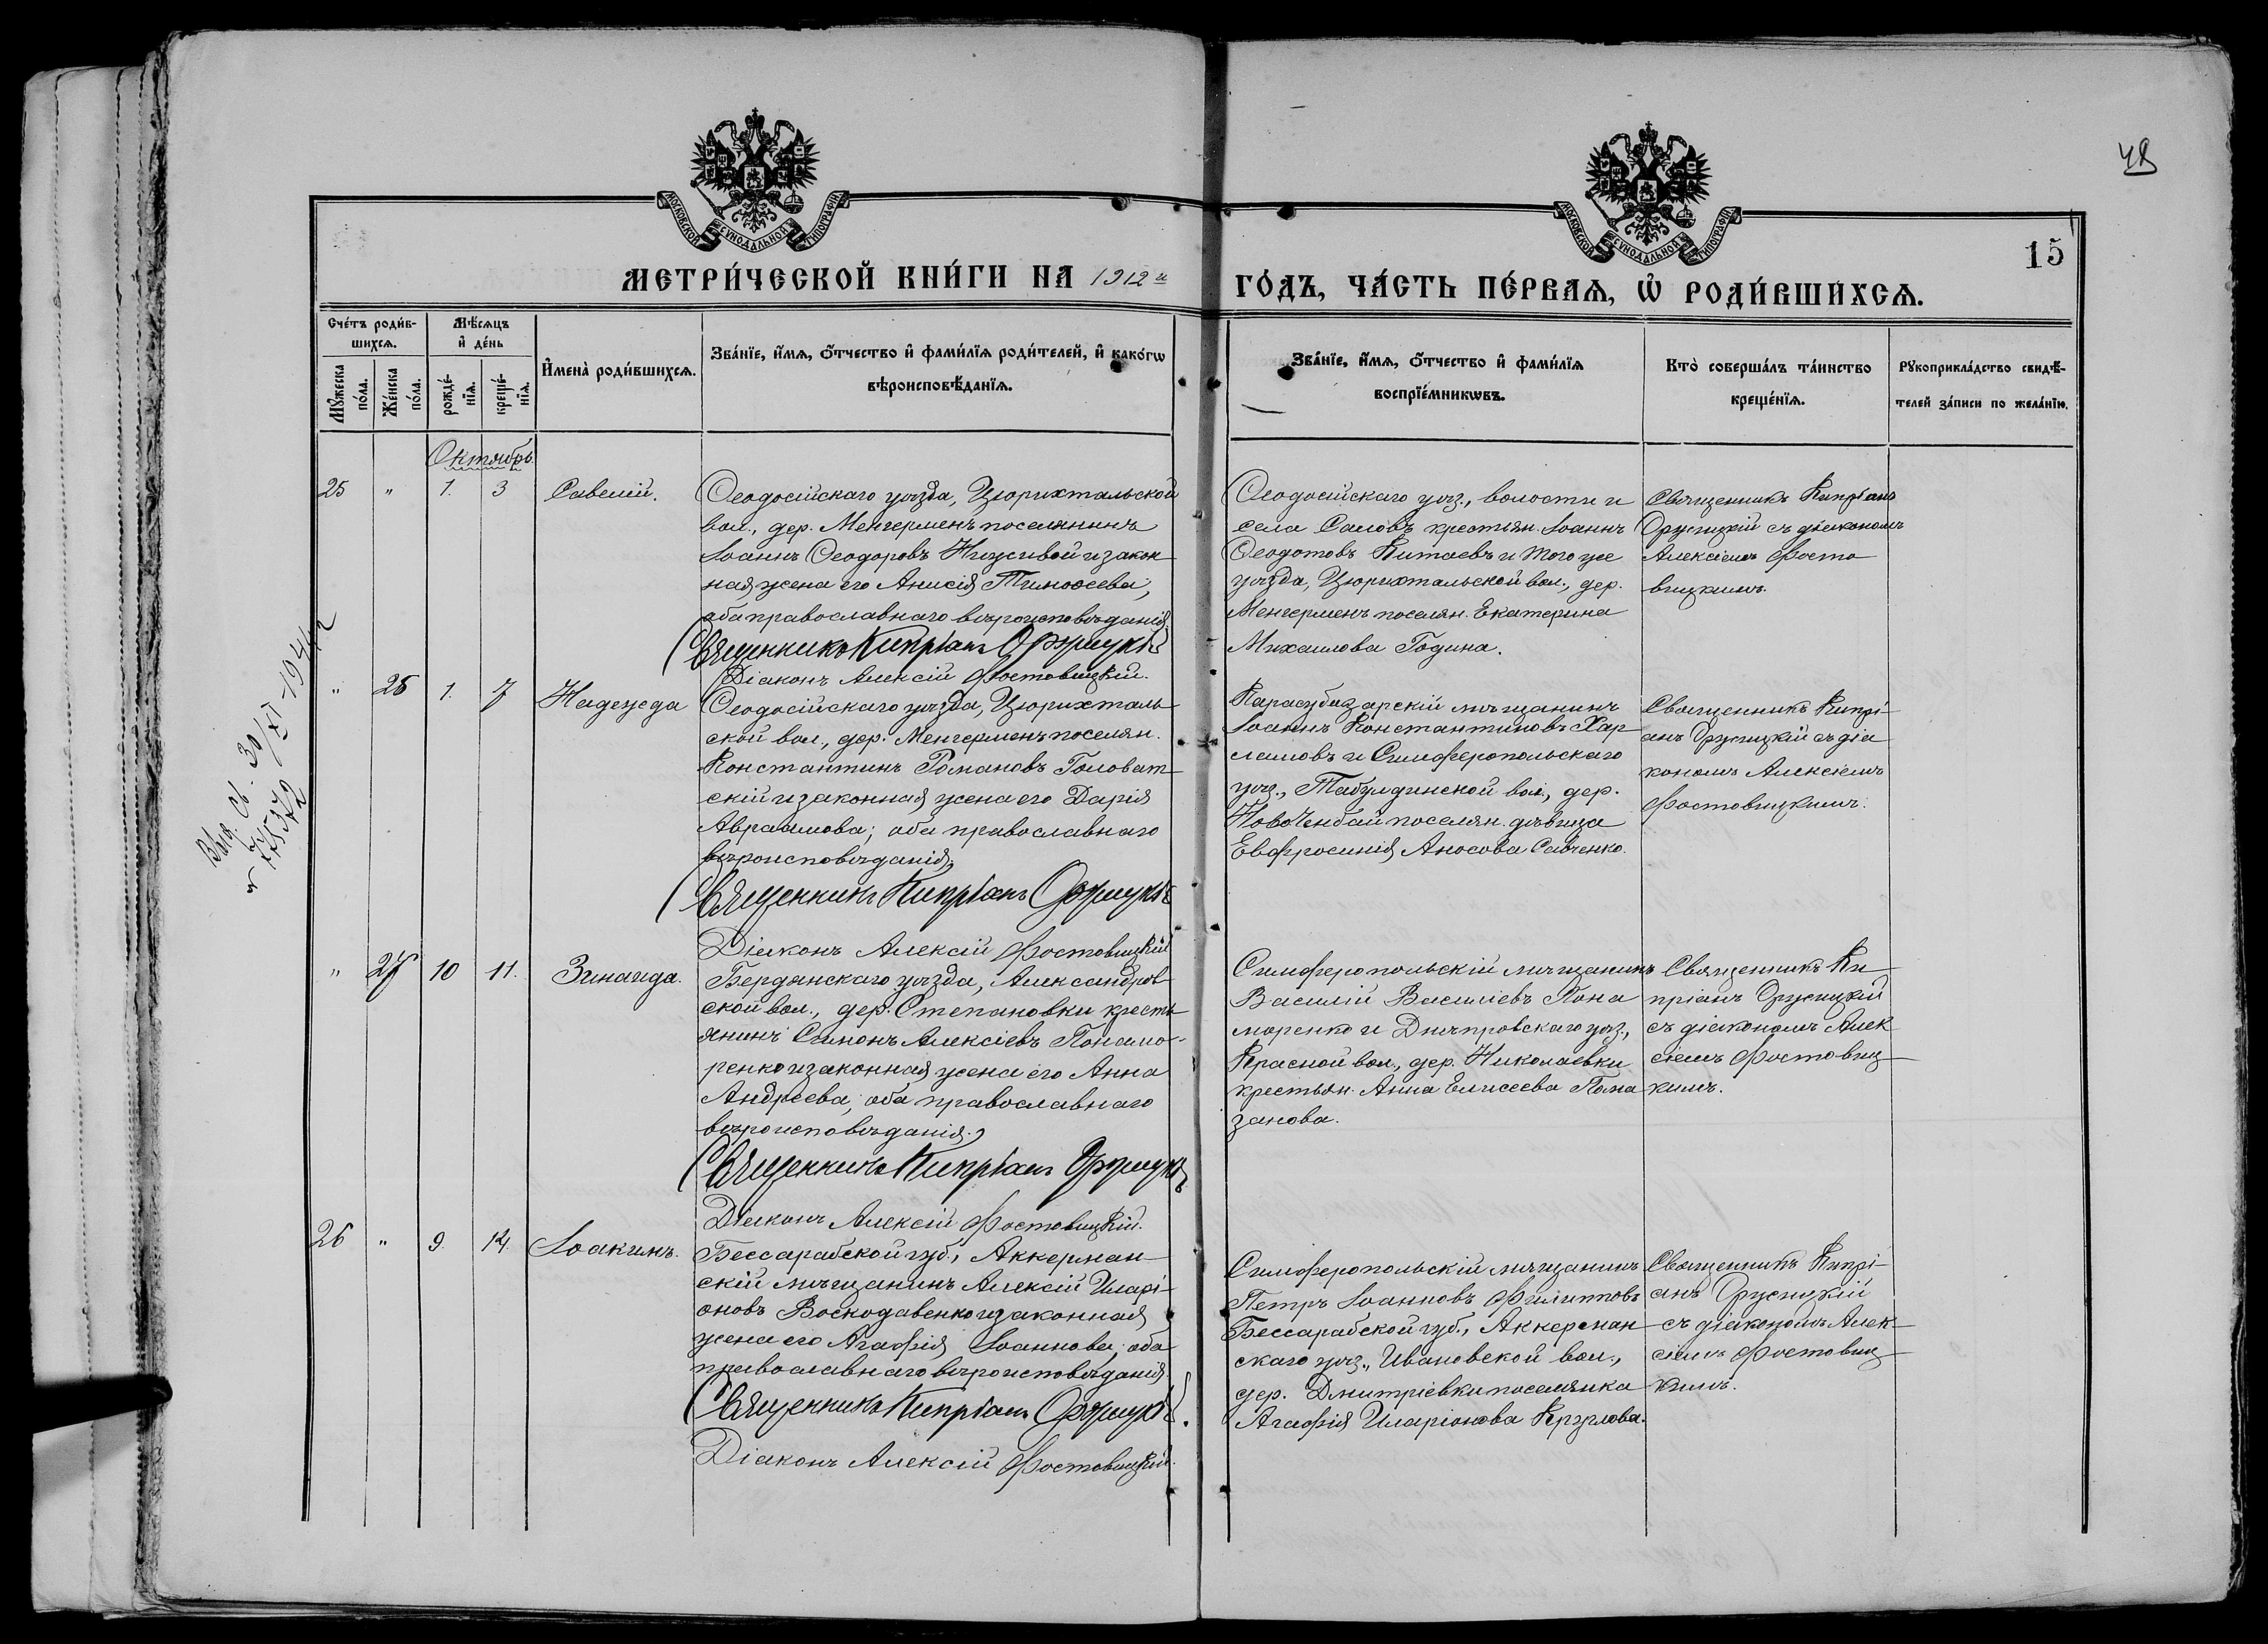 48
МОСКОВСКОЙ СУНОДАЛЬНОЙ ТИПОГРАФІИ
МОСКОВСКОЙ СУНОДАЛЬНОЙ ТИПОГРАФІИ
15
МЕТРИ́ЧЕСКОЙ КНИ́ГИ НА 1912 й ГО́ДЪ, ЧА́СТЬ ПЕ́РВАѦ, Ѡ҆ РОДИ́ВШИХСѦ.
Сче́тъ роди́в-
шихсѧ.
Мꙋ́жеска по́ла.
Же́нска по́ла.
Мѣ́сѧцъ
и҆ де́нь
рожде́-
нїѧ.
креще́-
нїѧ.
И҆мена̀ роди́вшихсѧ.
Зва́нїе, и҆́мѧ, ѻ҆́тчество и҆ фами́лїѧ роди́телей, и҆ како́гѡ
вѣроисповѣ́данїѧ.
Зва́нїе, и҆́мѧ, ѻ҆́тчество и҆ фами́лїѧ
воспрїе́мникѡвъ.
Кто̀ соверша́лъ та́инство
креще́нїѧ.
Рꙋкоприкла́дство свидѣ́-
телей за́писи по жела́нїю.
Октябрь.
25 " 1. 3 Савелій.
Ѳеодосійскаго уѣзда, Цюрихтальской
вол., дер. Менгерменъ поселянинъ
Іоаннъ Ѳеодоровъ и закон
ная жена его Анисія Тимоѳеева;
оба православнаго вѣроисповѣданія.
Священникъ Кипріанъ
Діаконъ Алексій Фостовицкій.
Ѳеодосійскаго уѣз., волости и
села Саловъ крестьян. Іоаннъ
Ѳеодотовъ Китаевъ и того же
уѣзда, Цюрихтальской вол., дер.
Менгерменъ поселян. Екатерина
Михаилова Година.
Священникъ Кипріанъ
съ діакономъ
Алексіемъ Фосто
вицкимъ.
" 26 1. 7 Надежда
Ѳеодосійскаго уѣзда, Цюрихталь
ской вол., дер. Менгерменъ поселян.
Константинъ Романовъ Головат
скій и законная жена его Дарія
Авраамова; оба православнаго
вѣроисповѣданія.
Священникъ Кипріанъ
Діаконъ Алексій Фостовицкій
Карасубазарскій мѣщанинъ
Іоаннъ Константиновъ Хар
ламовъ и Симферопольскаго
уѣз., Табулдинской вол., дер.
Ново Ченбай поселян. дѣвица
Евфросинія Аносова Савченко.
Священникъ Кипрі-
анъ съ діа
кономъ Алексіемъ
Фостовицкимъ.
" 27 10 11. Зинаида.
Бердянскаго уѣзда, Александров
ской вол., дер. Степановки кресть
янинъ Симонъ Алексіевъ Понамо-
ренко и законная жена его Анна
Андреева; оба православнаго
вѣроисповѣданія.
Священникъ Кипріанъ
Діаконъ Алексій Фостовицкій.
Симферопольскій мѣщанинъ
Василій Василіевъ Пона
моренко и Днѣпровскаго уѣз.,
Красной вол., дер. Николаевки
крестьян. Анна Елисеева Пома
занова.
Священникъ Ки
пріанъ
съ діакономъ Алек
сіемъ Фостовиц
кимъ.
26 " 9. 14. Іоакимъ.
Бессарабской губ., Аккерман
скій мѣщанинъ Алексій Иларі-
оновъ Воскодавенко и законная
жена его Агафія Іоаннова; оба
православнаго вѣроисповѣданія.
Священникъ Кипріанъ
Діаконъ Алексій Фостовицкій.
Симферопольскій мѣщанинъ
Петръ Іоанновъ Филиповъ
Бессарабской губ., Аккерман
скаго уѣз., Ивановской вол.,
дер. Дмитріевки поселянка
Агафія Иларіонова Круглова.
Священникъ Кипрі-
анъ
съ діакономъ Алек-
сіемъ Фостовиц
кимъ.